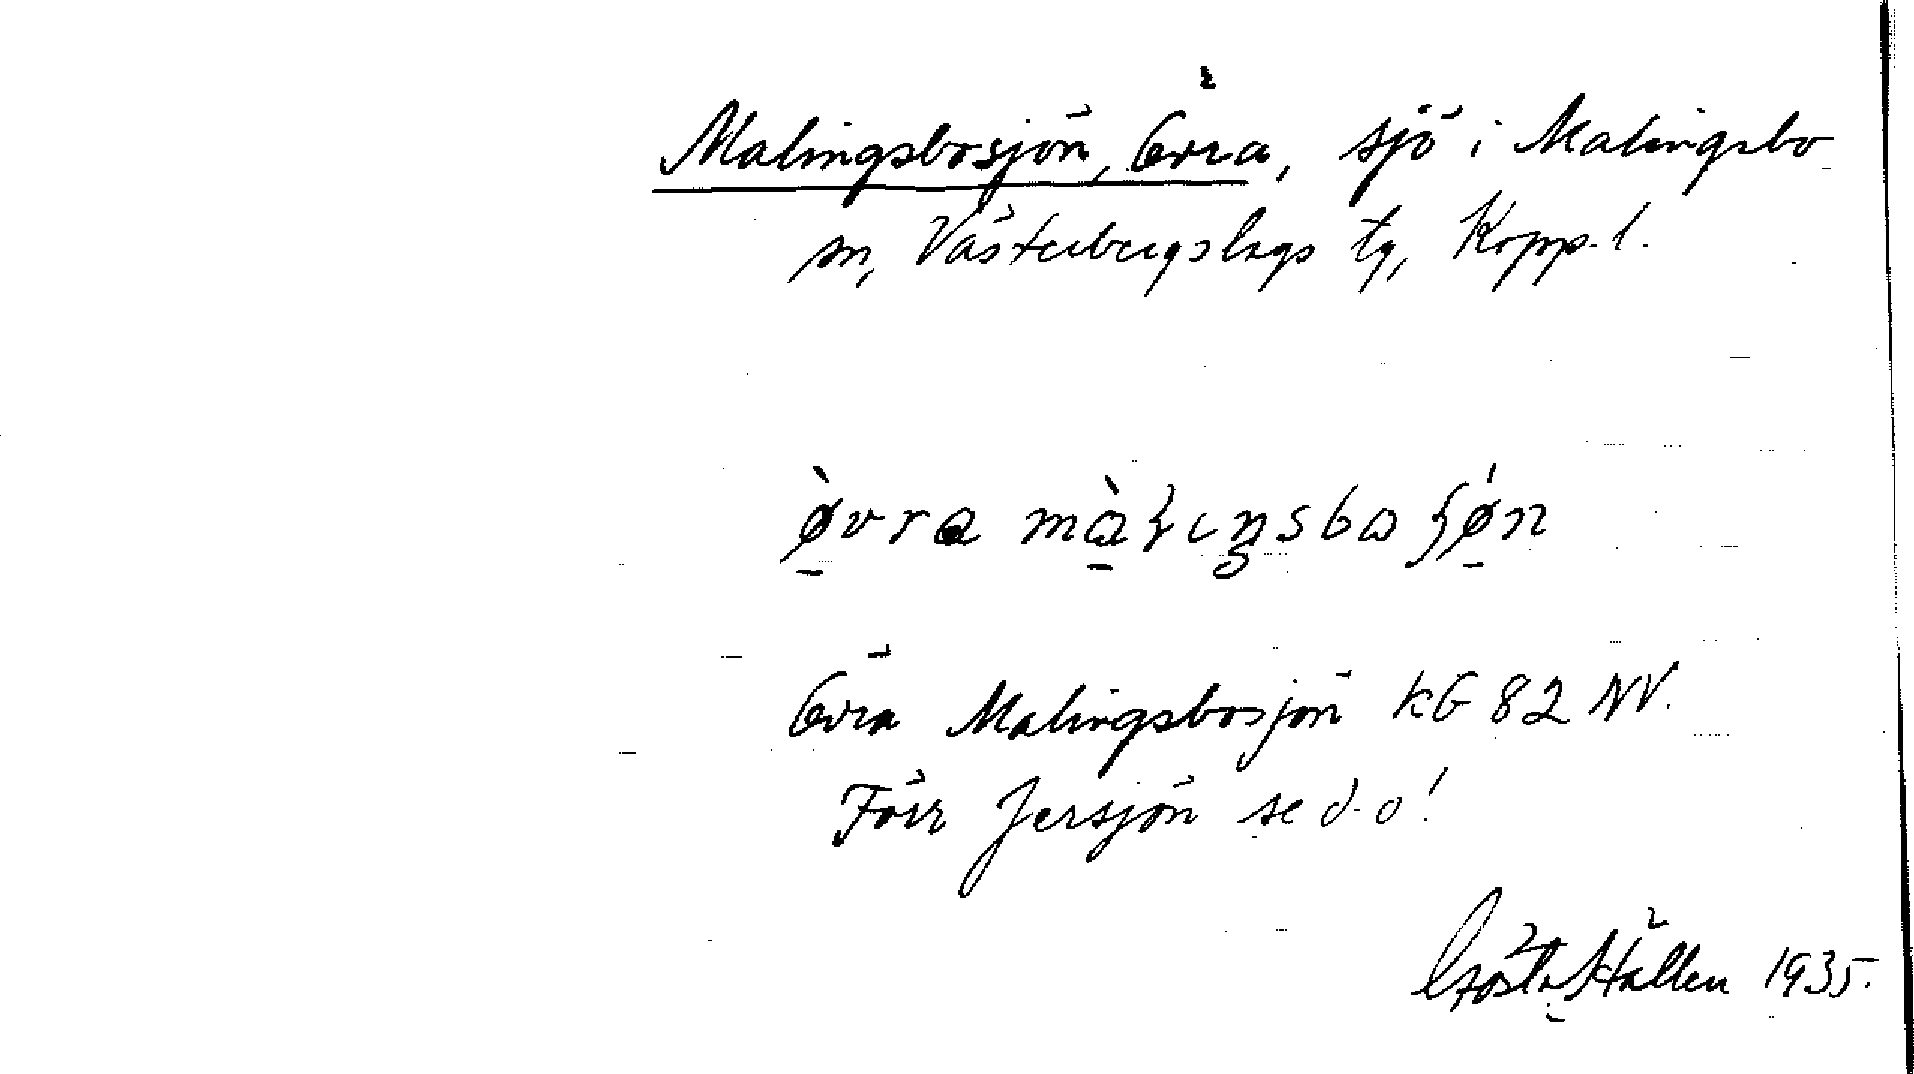 Malingsbosjön, Övra, sjö i Malingsbo
sn, Västerbergslags tg, Kopp. l.
Övra Malingsbosjön KG 82 NV.
Förr Jersjön se d. o!
Gösta Hallen 1935.